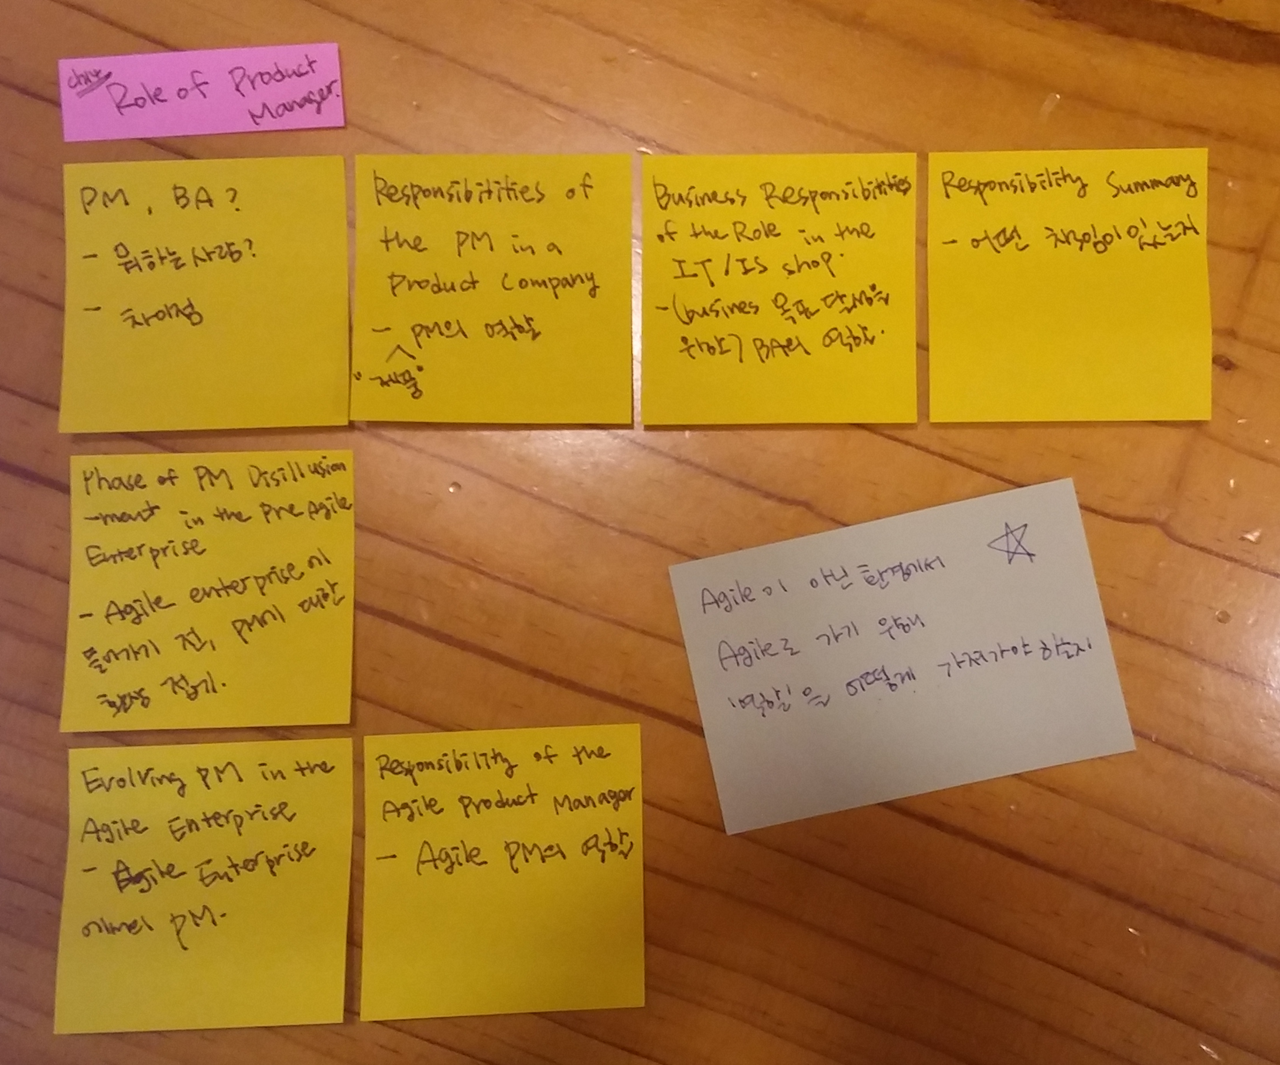 Role of Product
Manager.
PM, BA?
- 뭐하는 사람?
- 차이점
Responsibitities of
the PM in a
Product Company
- PM의 역할
"제품"
Business Responsibitities
of the Role in the
IT/IS shop.
- (busines 목표 달성을
위한) BA의 역할.
Responsibility Summary
- 어떤 책임이 있는지
Phase of PM Disillusion
-ment in the Pre Agile
Enterprise
- Agile enterprise에
들어가기 전, PM에 대한
환상 접기.
Agile이 아닌 환경에서
Agile로 가기 위해
'역할'을 어떻게 가져가야 하는지
Evolving PM in the
Agile Enterprise
- Agile Enterprise
에서의 PM.
Responsibility of the
Agile Product Manager
- Agile PM의 역할